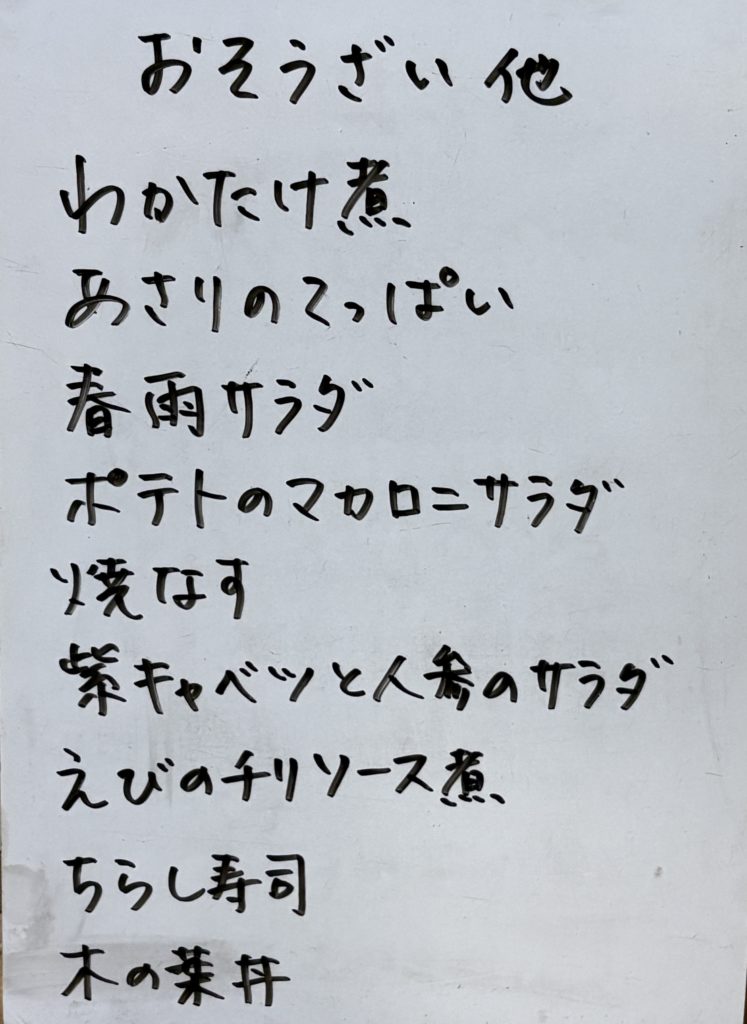 おそうざい 他
わかたけ煮
あさりのてっぱい
春雨サラダ
ポテトのマカロニサラダ
焼なす
紫キャベツと人参のサラダ
えびのチリソース煮
ちらし寿司
木の葉丼